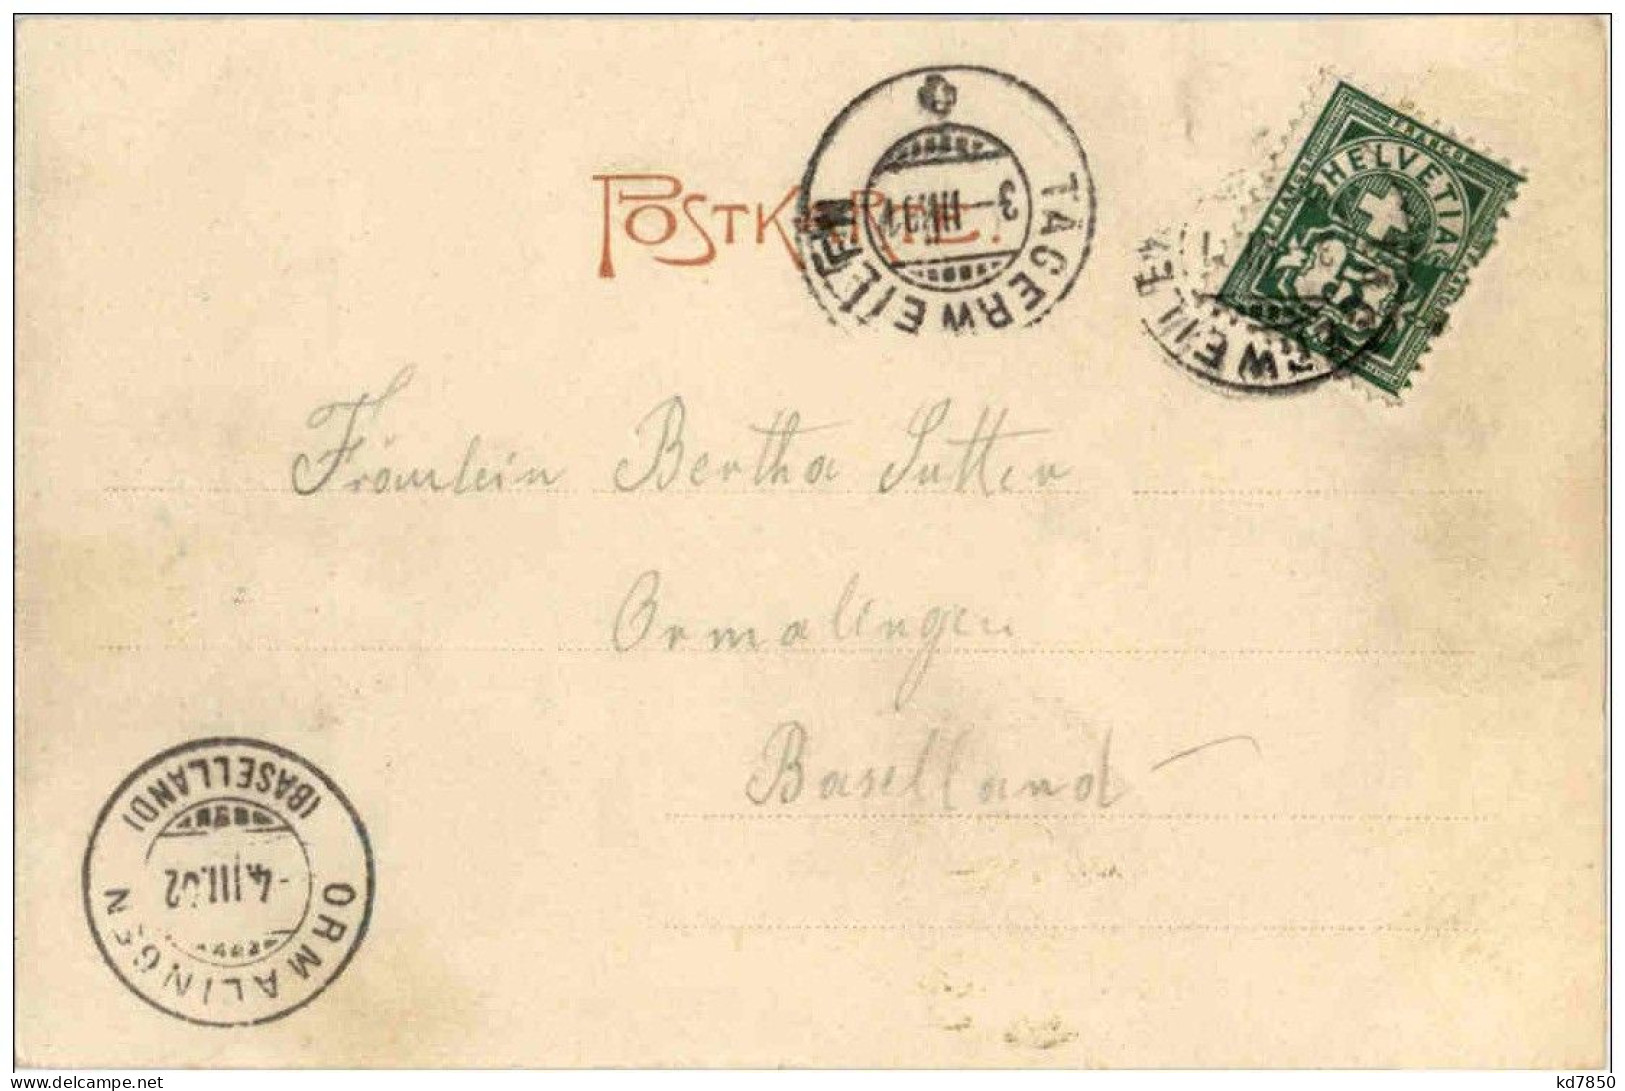 POSTKARTE.
TÄGERWEILEN
HELVETIA
FRANCO
5
Fräulein Bertha Sutter
Ormalingen
Baselland
ORMALINGEN
(BASELLAND)
-4.III.02
www.delcampe.net
kd7850